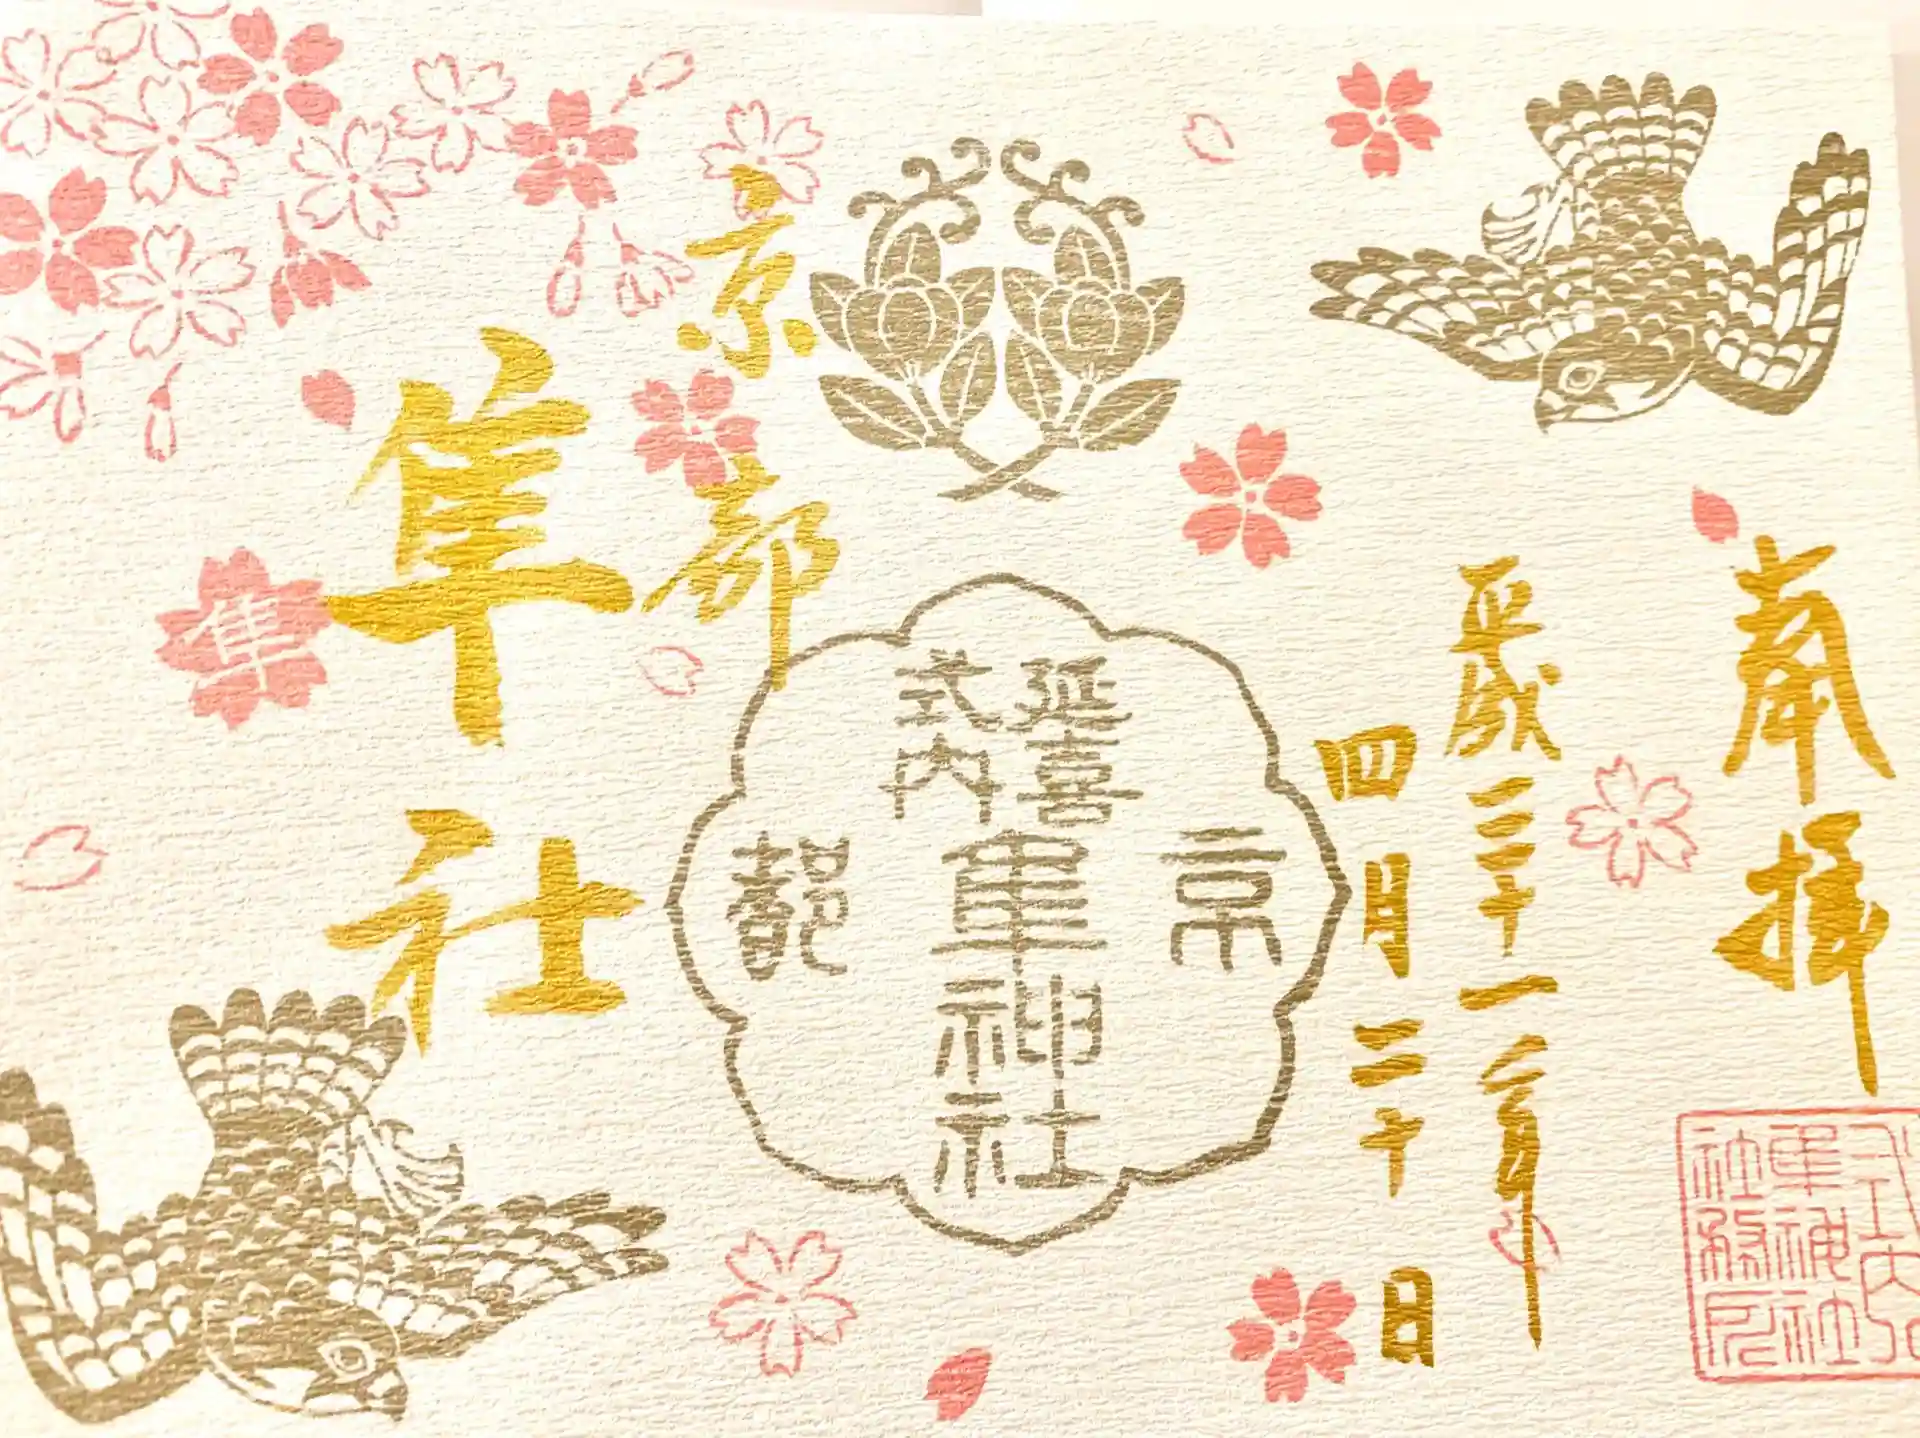 奉拝
平成三十一年
四月二十日
延喜
式内
京都
隼神社
京都
隼社
隼
式内
隼神社
社務所